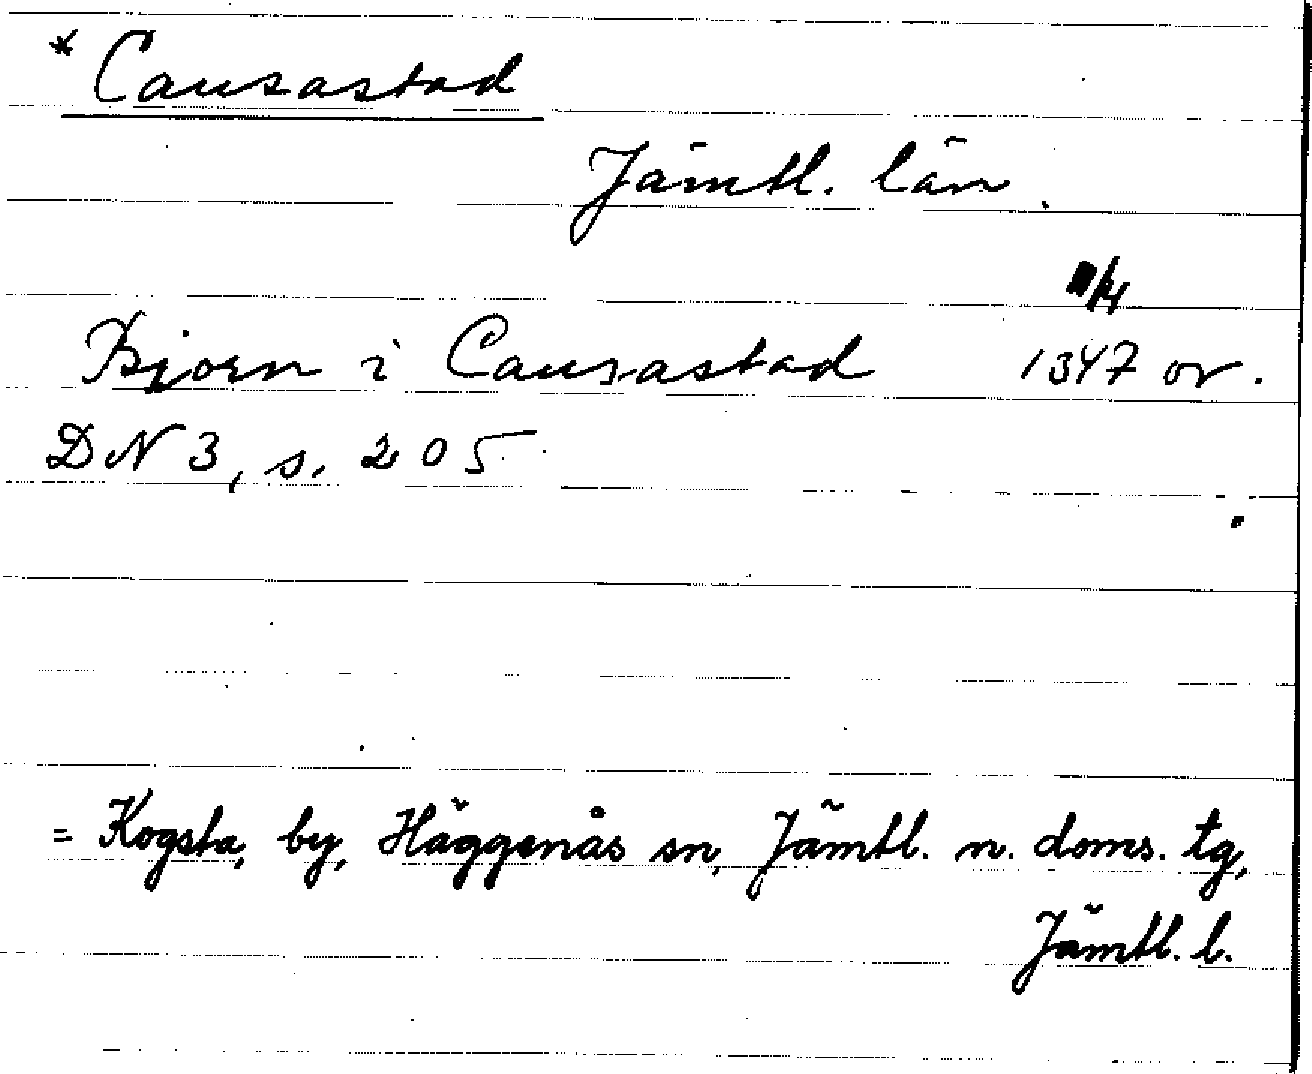 * Causastad
Jämtl. län.
Bjorn i Causastad 1347 or.
DN 3, s. 205
= Kogsta, by, Häggenås sn, Jämtl. n. doms. tg,
Jämtl. l.